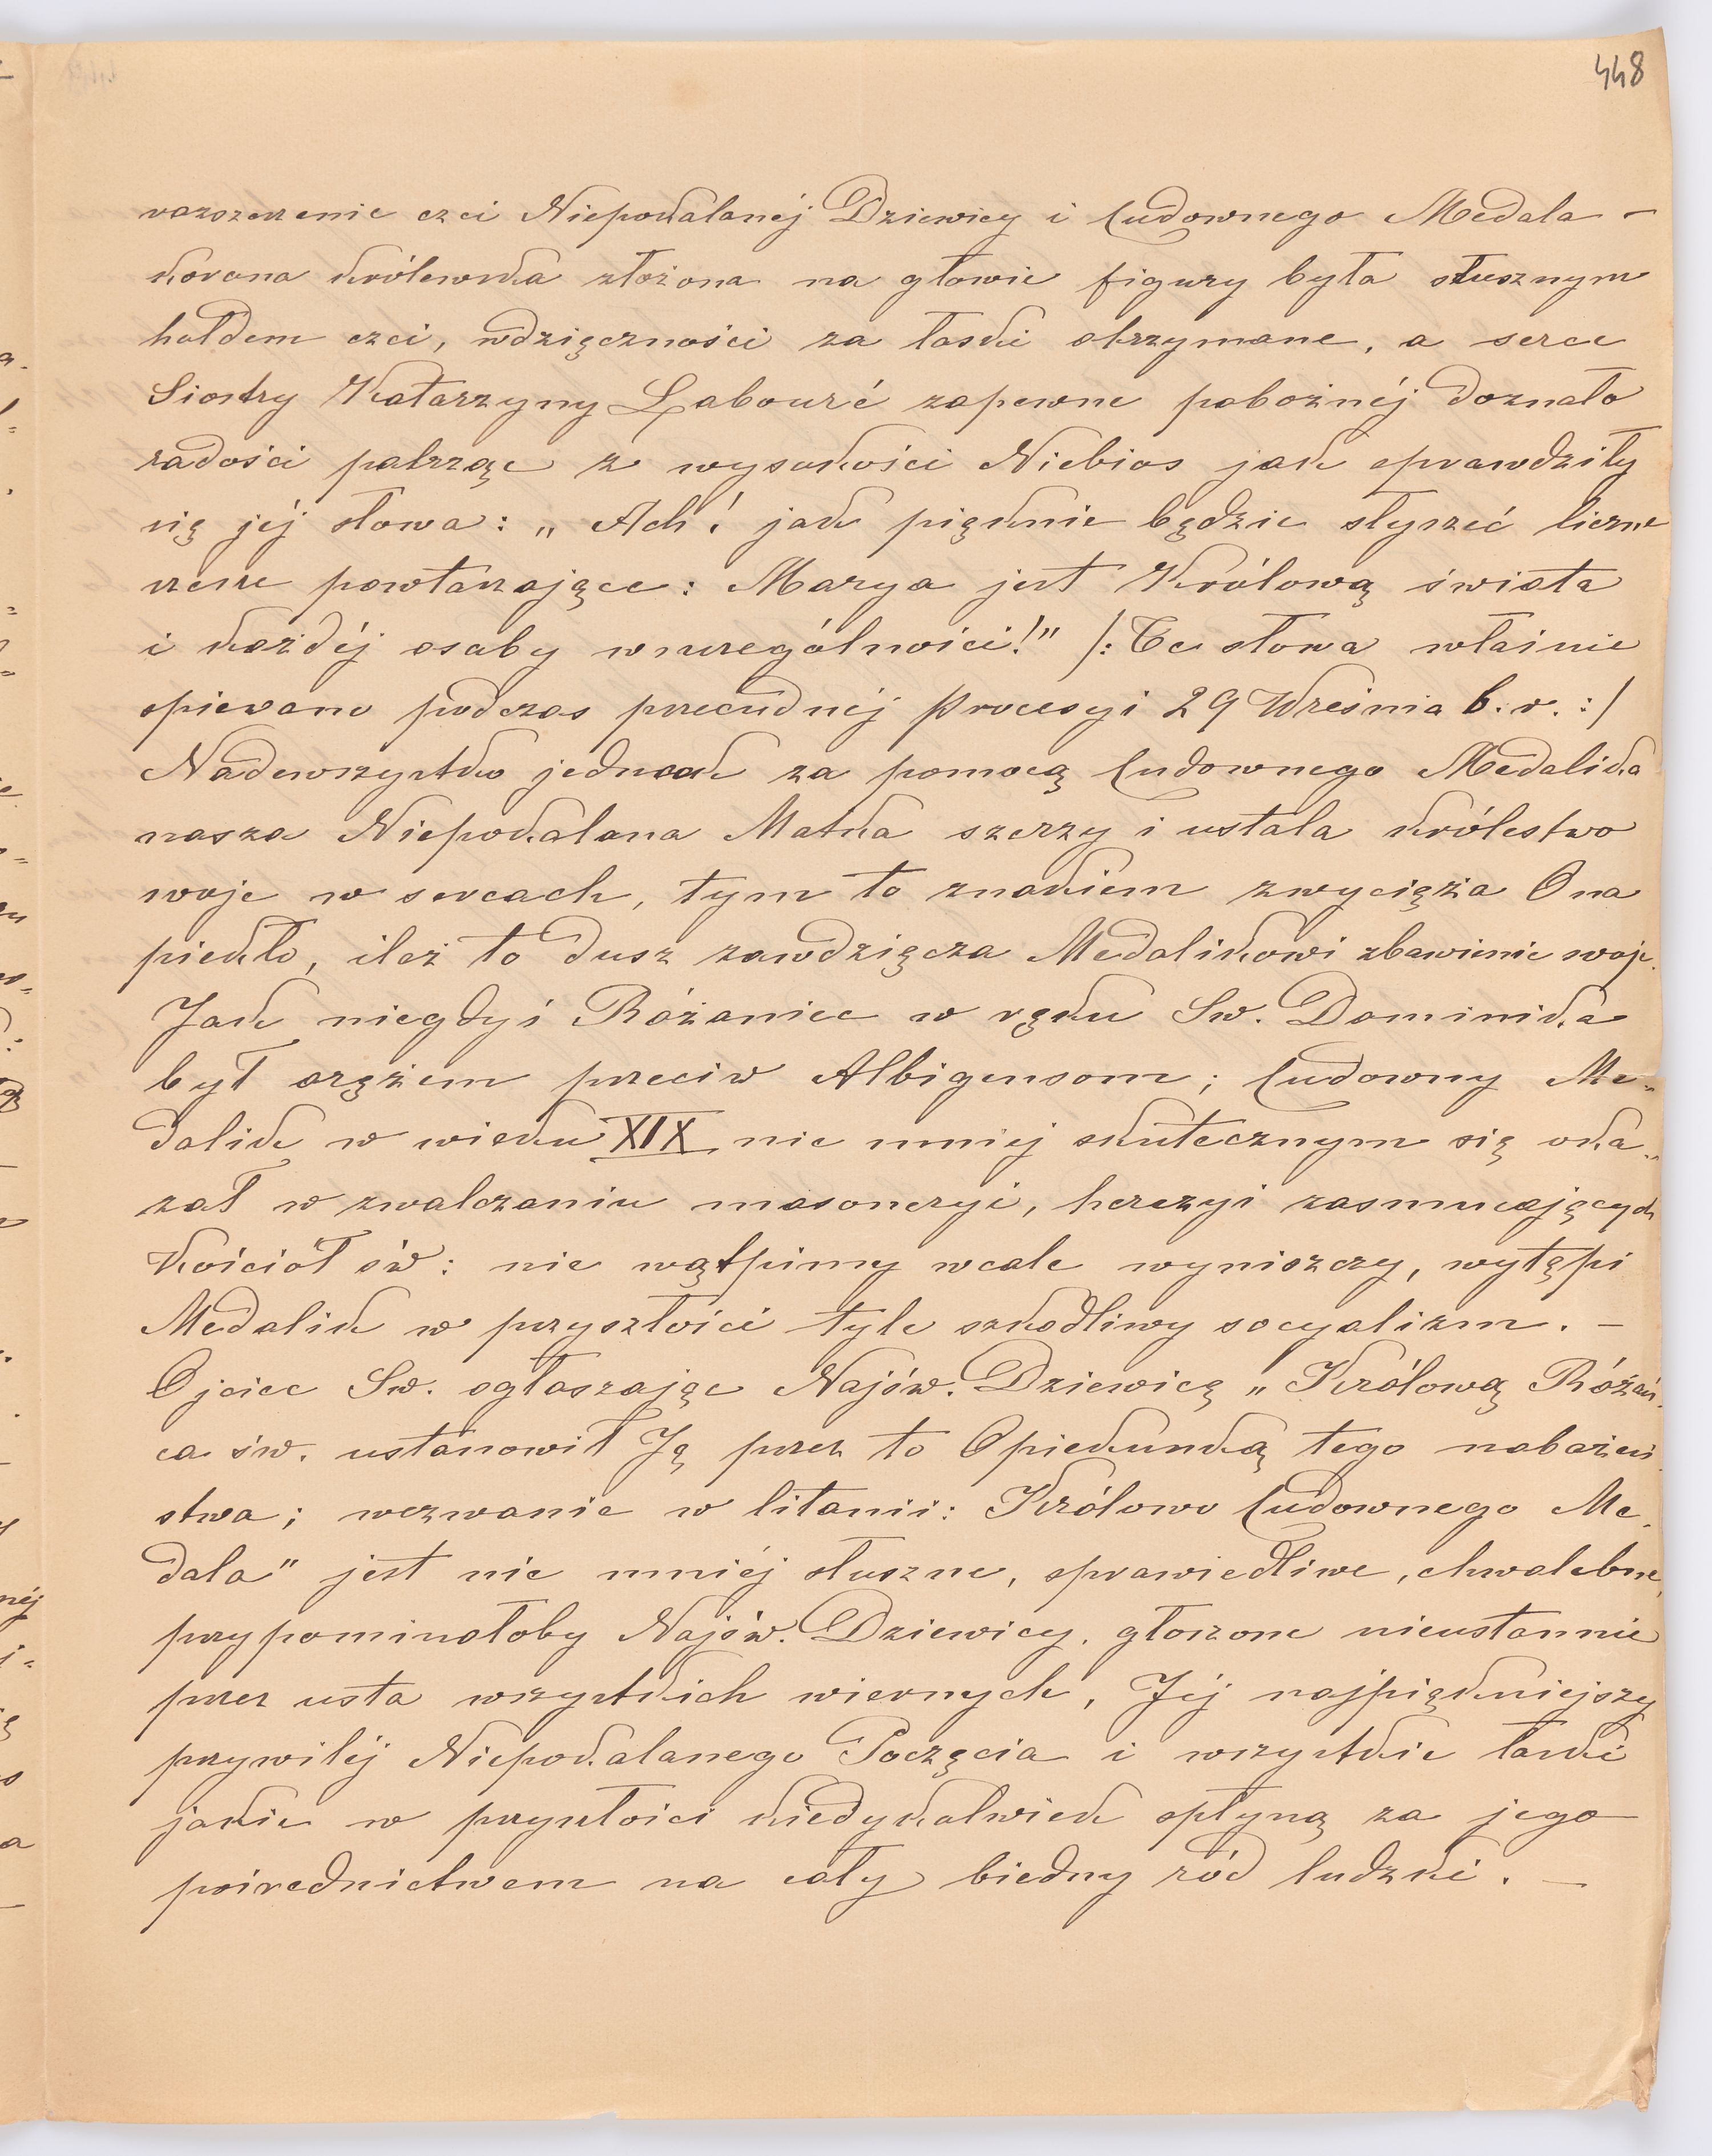 448
rozszerzenie czci Niepokalanéj Dziewicy i Cudownego Medala –
korona królewska złożona na głowie figury była słusznym
hołdem czci, wdzięczności za łaski otrzymane, a serce
Siostry Katarzyny Labouré zapewne pobożnéj doznało
radości patrząc z wysokości Niebios jak sprawdziły
się jéj słowa: „Ach! jak pięknie będzie słyszéć liczne
rzesze powtarzające: Marya jest Królową świata
i każdéj osoby wszczególności!" /: Te słowa właśnie
śpiewano podczas przecudnéj Procesyi 29 Września b. r. :/
Nadewszystko jednak za pomocą Cudownego Medalika
nasza Niepokalana Matka szerzy i ustala królestwo
swoje w sercach, tym to znakiem zwycięża Ona
piekło, ileż to dusz zawdzięcza Medalikowi zbawienie swoje.
Jak niegdyś Różaniec w ręku Św. Dominika
był orężem przeciw Albigensom; Cudowny Me=
dalik w wieku XIX nie mniej skutecznym się oka=
zał w zwalczaniu masoneryi, herezyi zasmucających
Kościół św: nie wątpimy wcale wyniszczy, wytępi
Medalik w przyszłości tyle szkodliwy socyalizm. –
Ojciec Św. ogłaszając Najśw. Dziewicę „Królową Różań-
ca św. ustanowił Ją przez to Opiekunką tego nabożeń-
stwa; wezwanie w litanii: Królowo Cudownego Me-
dala" jest nie mniéj słuszne, sprawiedliwe, chwalebne,
przypominałoby Najśw. Dziewicy, głoszone nieustannie
przez usta wszystkich wiernych, Jéj najpiękniejszy
przywiléj Niepokalanego Poczęcia i wszystkie łaski
jakie w przyszłości kiedykolwiek spłyną za jego
pośrednictwem na cały biedny ród ludzki. –